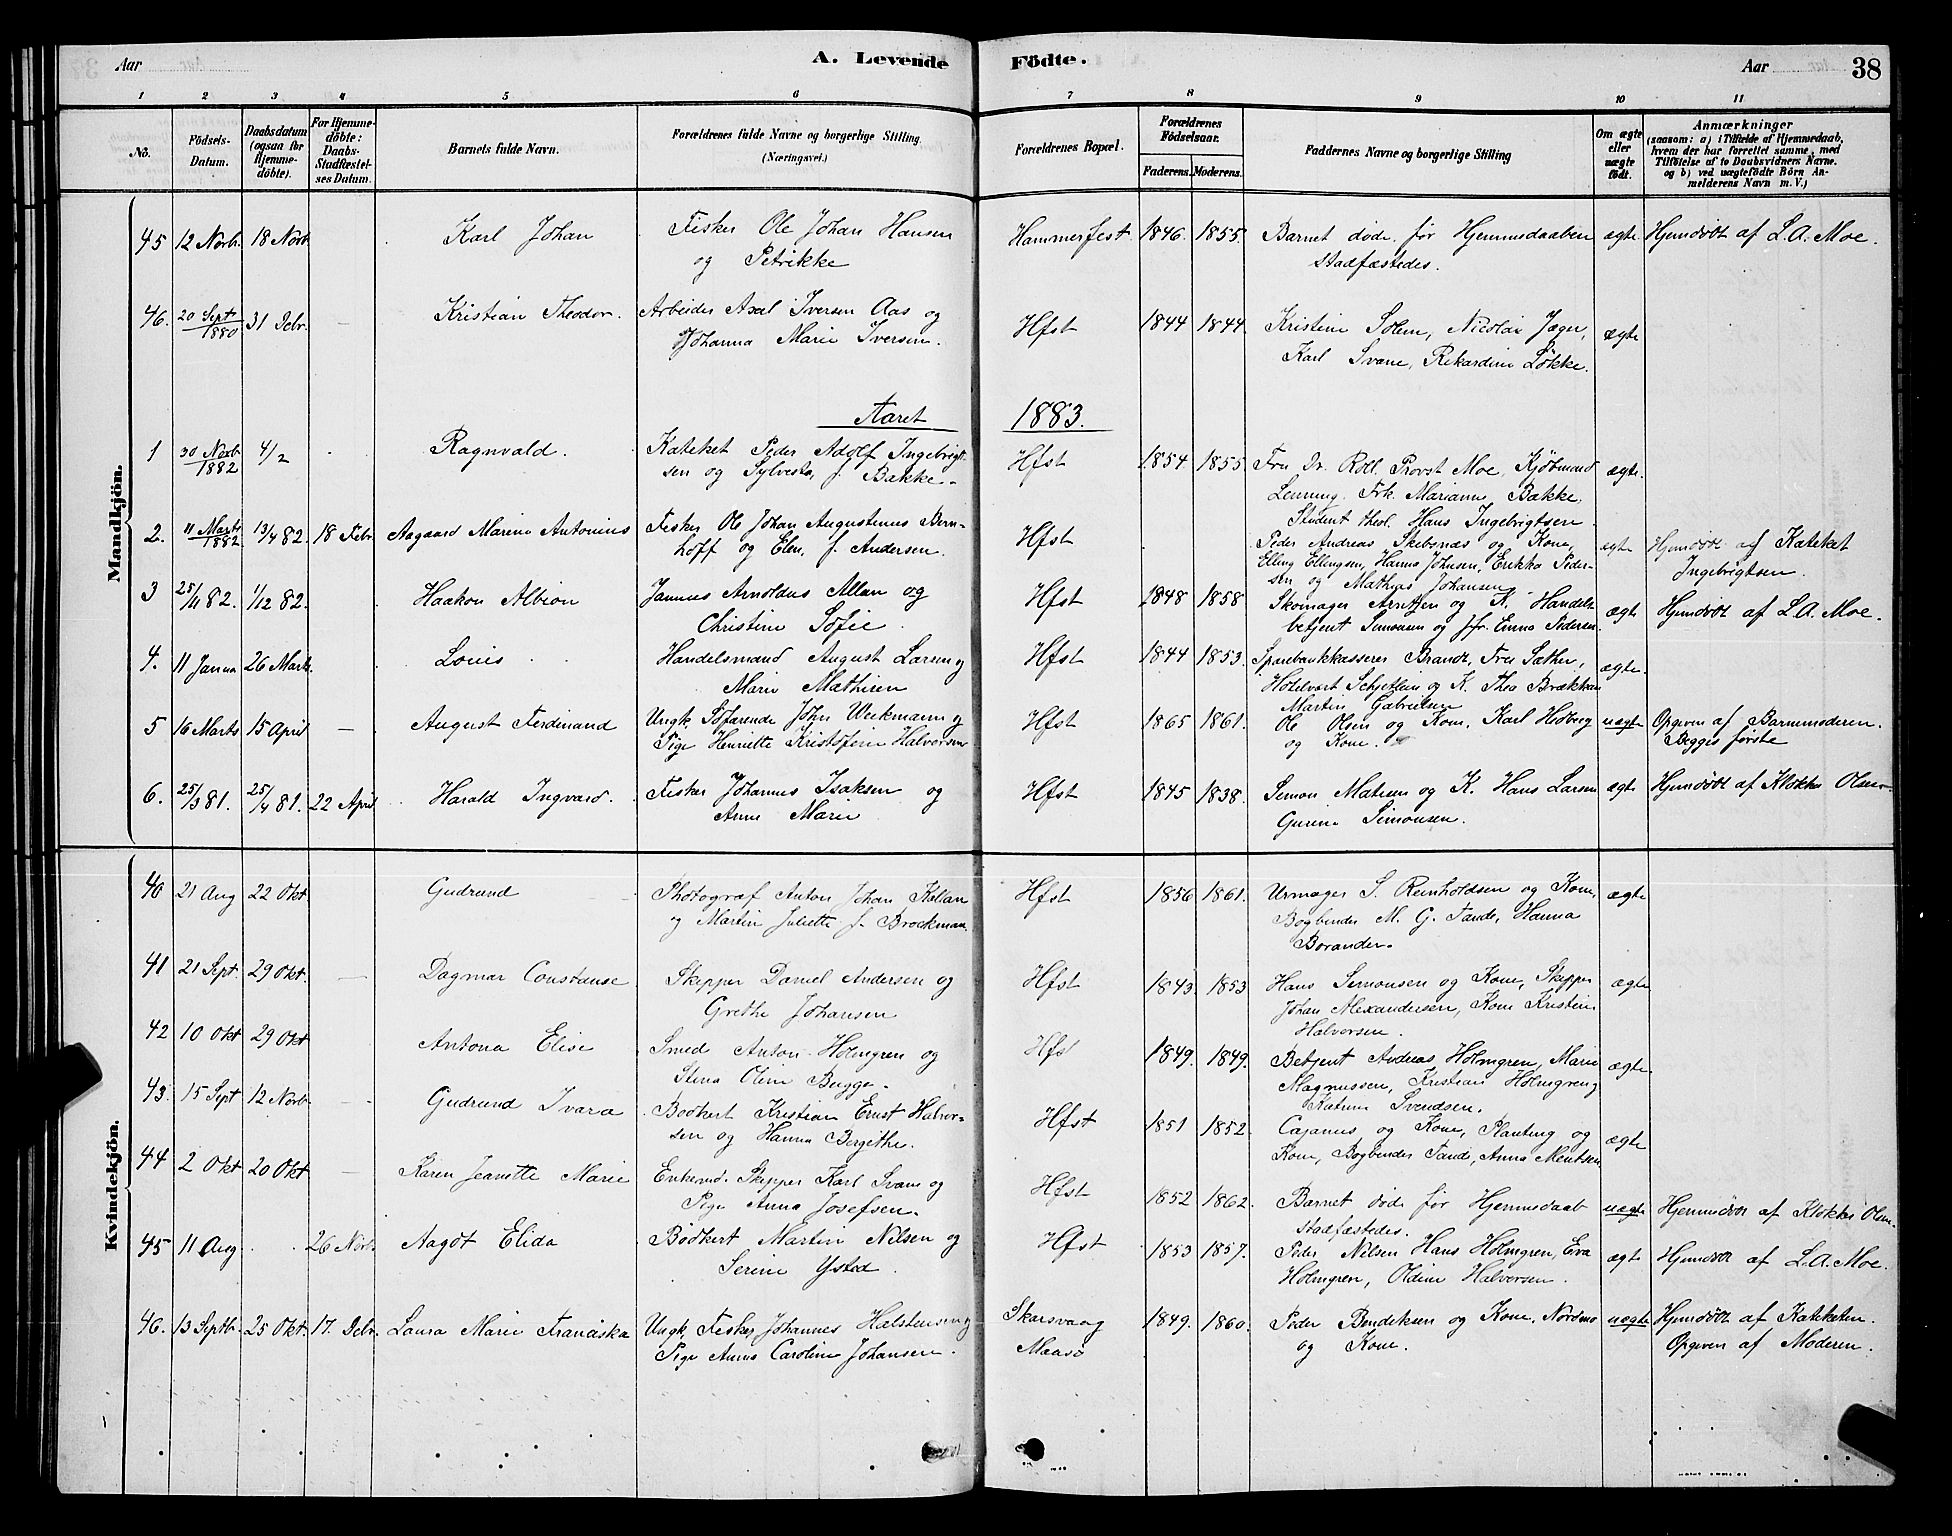 Aar A. Levende Födte. Aar 38
1 2 3 4 5 6 7 8 9 10 11
No. Födsels-Datum. Daabsdatum (ogsaa for Hjemmedöbte). For Hjemmedöbte: Daabs-Stadfæstelses Datum. Barnets fulde Navn. Forældrenes fulde Navne og borgerlige Stilling (Næringsvei.) Forældrenes Bopæl. Forældrenes Födselsaar. Faderens. Moderens. Faddernes Navne og borgerlige Stilling Om ægte eller uægte födt. Anmærkninger (saasom: a) i Tilfælde af Hjemmedaab, hvem der har forrettet samme, med Tilföielse af to Daabsvidners Navne, og b) ved uægtefödte Börn Anmelderens Navn m. V.)
Mandkjön.
45 12 Novb. 18 Novb. Karl Johan Fisker Ole Johan Hansen Hammerfest. 1846. 1855. Barnet døde før Hjemmedaaben ægte Hjemdøbt af L.A. Moe.
og Petrikke stadfæstedes.
46. 20 Sept 1880 31 Debr. — Kristian Theodor. Arbeider Axel Iversen Aas og Hfst 1844 1844. Kristine Solem, Nicolai Jæger, ægte
Johanna Marie Iversen. Karl Svane, Rikardine Løkke.
Aaret 1883.
1 30 Novb 1882 4/2 Ragnvald. Kateket Peder Adolf Ingebrigt- Hfst 1854 1855. Fru Dr. Roll. Provst Moe, Kjøbmand ægte.
sen og Sylvesta f. Bakke. Lenning. Frk. Marianne Bakke.
Student theol. Hans Ingebrigtsen.
2. 11 Marts 1882 13/4 82. 18 Febr. Aagaard Marino Antonius Fisker Ole Johan Augustinus Bern- Hfst Peder Andreas Skebsnæs og Kone, ægte Hjemdøbt af Kateket
hoff og Elen f. Andersen. Elling Ellingsen, Hanna Johnsen, Erikka Peder- Ingebrigtsen.
sen og Mathias Johansen.
3 25/11 82. 1/12 82. Haakon Albion Jannus Arnoldus Allan og Hfst 1848 1858. Skomager Arntzen og K. Handels- ægte Hjemdøbt af L.A. Moe.
Christine Sofie. betjent Simonsen og Jfr. Emma Pedersen.
4. 11 Janua 26 Marts. Louis Handelsmand August Larsen og Hfst 1844 1853. Sparebankkasserer Brandt, Fru Sæther, ægte.
Marie Mathisen Hotelvært Schjetlein og K. Thea Brækkan
Martin Gabrielsen
5 16 Marts 15 April — August Ferdinand Ungk. Søfarende John Weikmann og Hfst 1865 1861. Ole Olsen og Kone. Karl Hoberg uægte Opgiven af Barnemoderen.
Pige Henriette Kristofine Halvorsen og Kone. Begges første
6. 25/3 81. 25/4 81. 22 April Harald Ingvard. Fisker Johannes Isaksen og Hfst 1845 1838. Simon Matisen og K. Hans Larsen ægte Hjemdøbt af Klokker Olsen.
Anne Marie Gurine Simonsen.
Kvindekjön.
40 21 Aug 22 Okt Gudrund Photograf Anton Johan Kjellan Hfst 1856 1861. Urmager S. Reinholdsen og Kone, ægte
og Martine Juliette f. Brockman. Bogbinder M. G. Tande, Hanna
Borander.
41 21 Sept. 29 Okt. — Dagmar Constanse Skipper Daniel Andersen og Hfst 1843. 1853 Hans Simonsen og Kone, Skipper ægte
Grethe Johansen Johan Alexandersen, Kone Kristine
Halvorsen.
42 10 Okt 29 Okt Antona Elise Smed Anton Holmgren og Hfst 1849. 1849. Betjent Andreas Holmgren, Marie ægte.
Stina Oline Bugge. Magnussen, Kristian Holmgren og
Katrine Svendsen.
43. 15 Sept 12 Novb — Gudrund Ivara Bødkert Kristian Ernst Halvor- Hfst 1851 1852. Cajanus og Kone, Planting og ægte
sen og Hanna Bergithe. Kone, Bogbinder Tande, Anna Mentsen
44 2 Okt 20 Okt — Karen Jeanette Marie Enkemd. Skipper Karl Svane og Hfst 1852 1862. Barnet døde før Hjemmedaab uægte Hjemmedøbt af Klokker Olsen.
Pige Anna Josefsen. stadfæstedes.
45 11 Aug 26 Novb. Aagot Elida Bødkert Martin Nilsen og Hfst 1853 1857. Peder Nilsen Hans Holmgren, Eva ægte Hjemdøbt af L.A. Moe.
Serine Ysted. Holmgren, Oldine Halvorsen.
46. 13 Septb. 25 Okt. 17. Debr. Laura Marie Franciska Ungk. Fisker Johannes Halstensen og Skarsvaag 1849. 1860. Peder Bendiksen og Kone. Nordmo uægte Hjemdøbt af Kateketen.
Pige Anna Caroline Johansen. Maasø og Kone. Opgiven af Moderen.